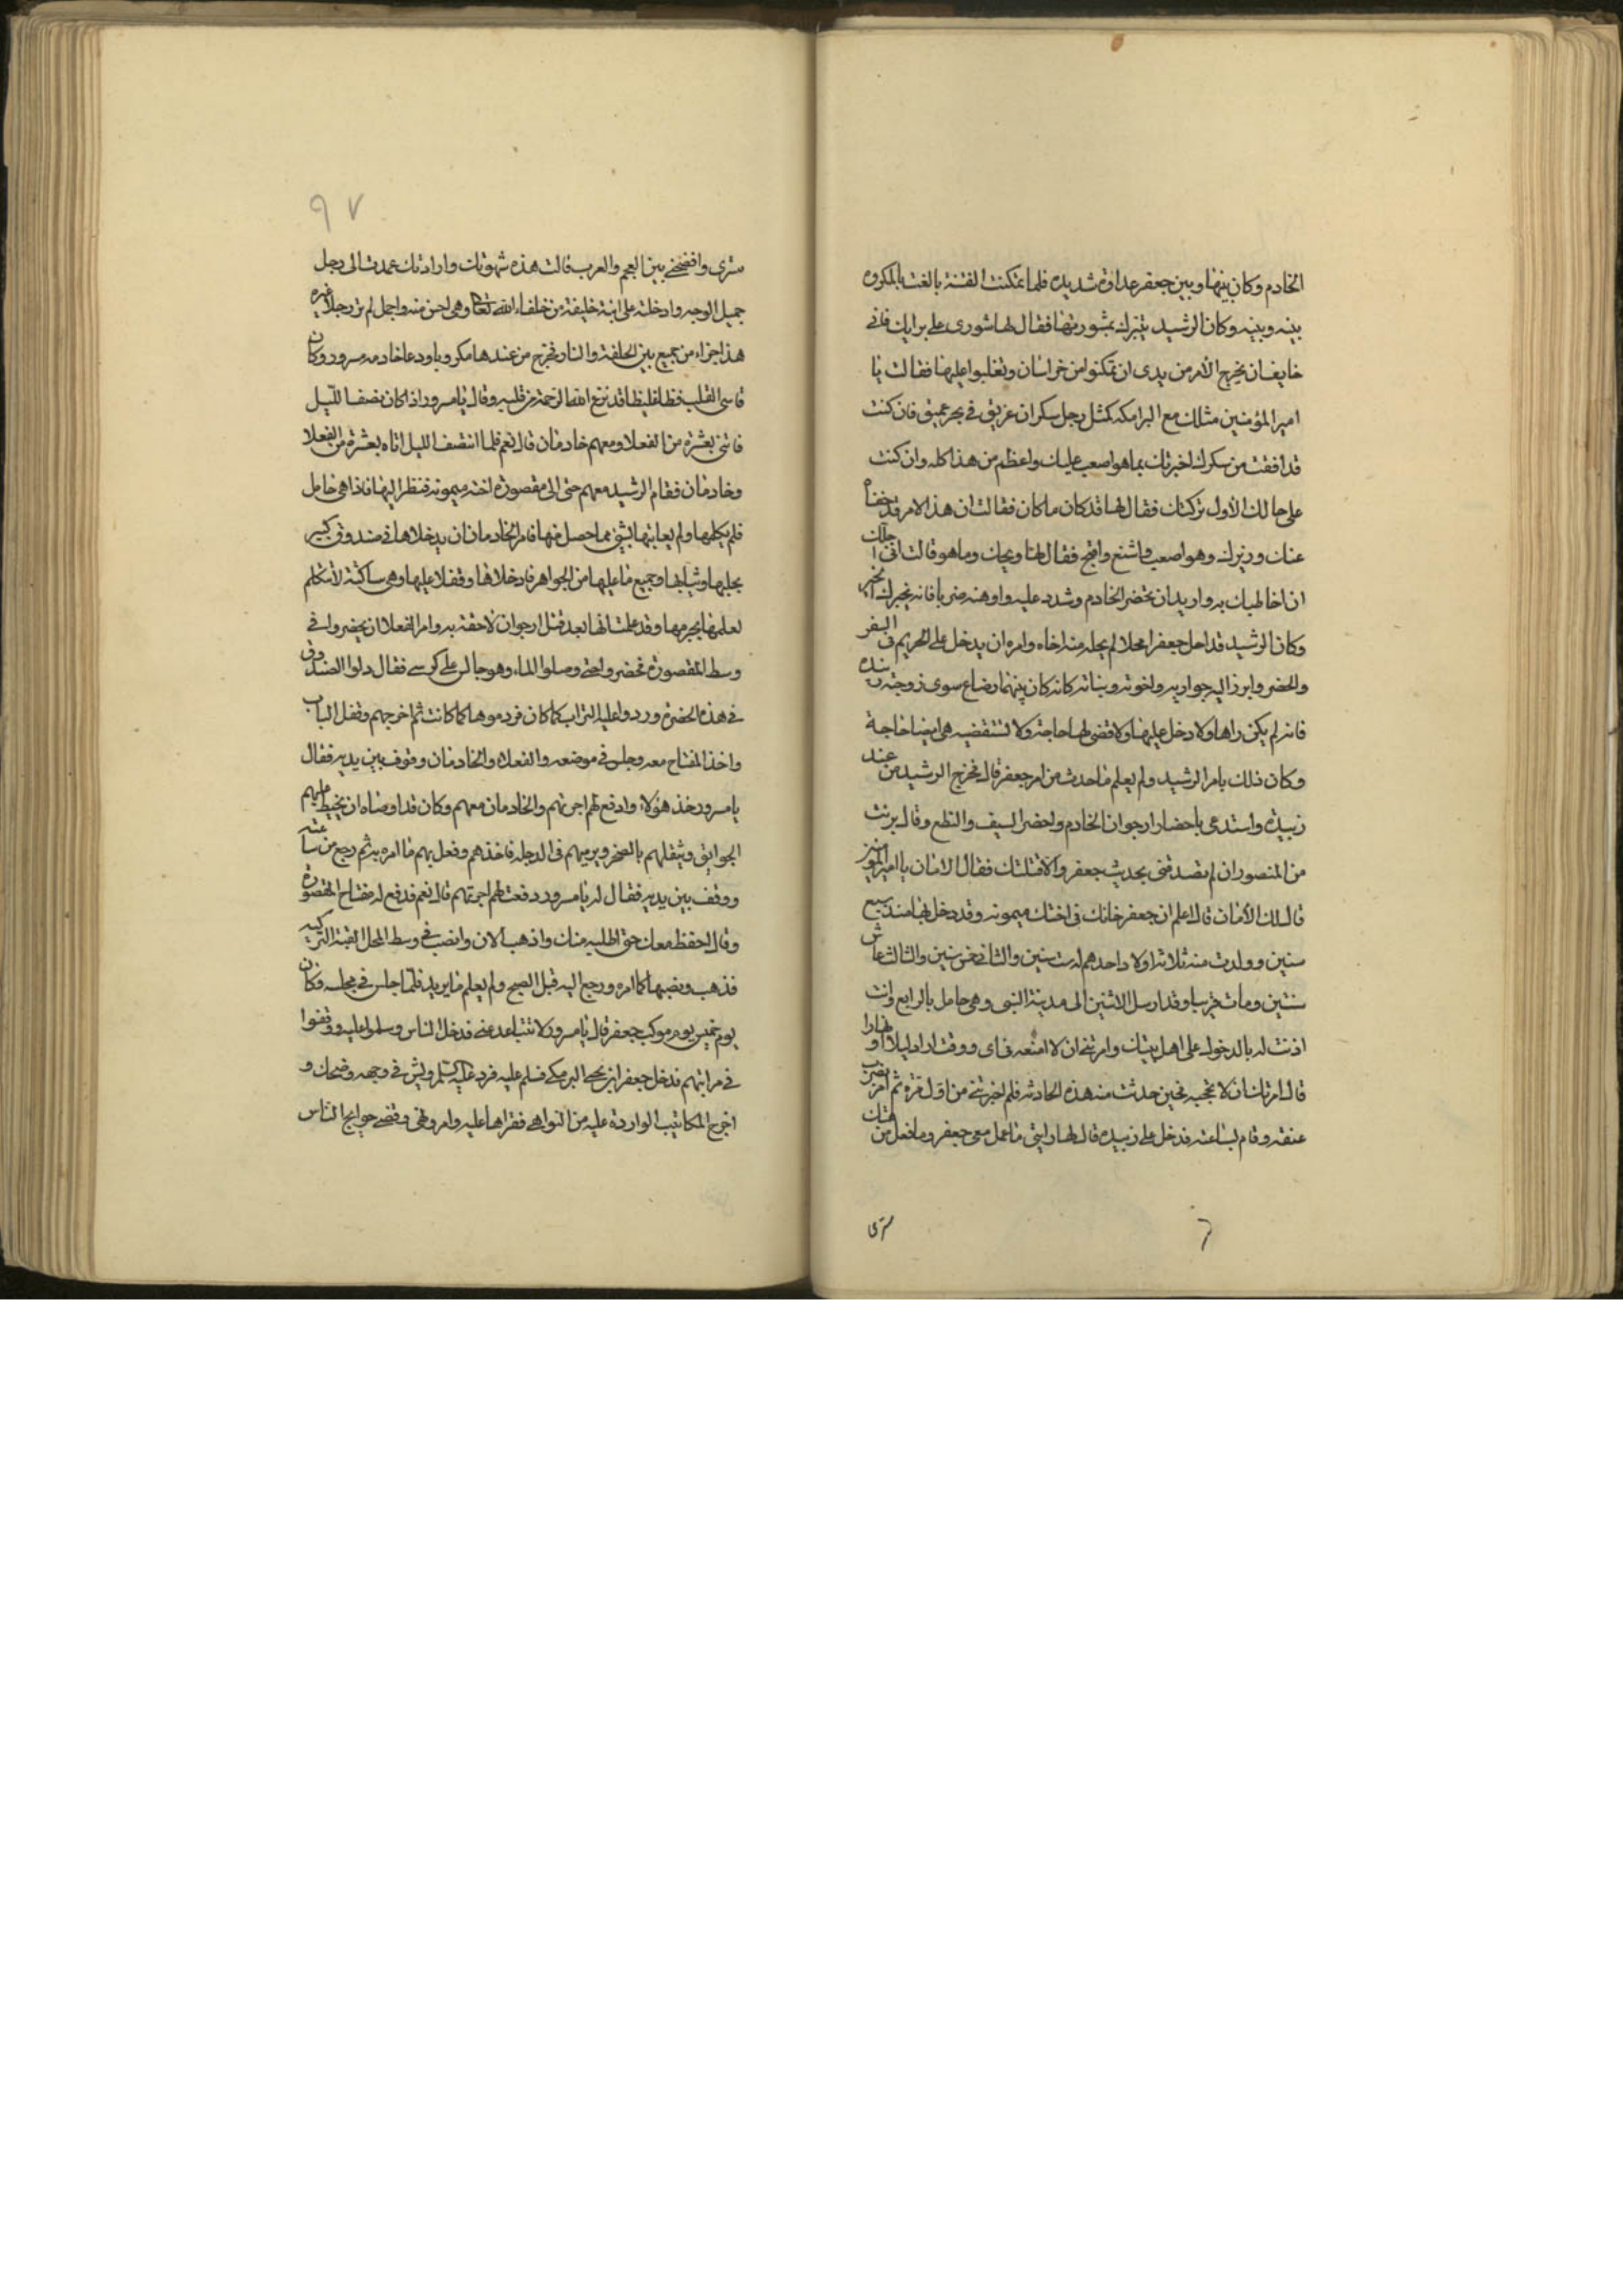 الخادم وكان بينها وبين جعفر عداوة شديده فلما تمكنت الفتنة بالغت بالمكروه
بينه وبينه وكان الرشيد يتبرك بمشورتها فقال لها شورى على برايك فاني
خايف ان يخرج الأمر من يدى ان تمكنوا من خراسان وتغلبوا عليها فقالت يا
امير المؤمنين مثلك مع البرامكه كمثل رجل سكران غريق في بحر عميق فان كنت
قد افقت من سكرك اخبرتك بما هو اصعب عليك واعظم من هذا كله وان كنت
على حالك الأول تركتك فقال لها قد كان ما كان فقالت ان هذا الامر قد
عنك وزيرك وهو اصعب واشنع واقبح فقال لها ويحك وما هو قالت انى اجلك
ان اخاطبك به واريد ان تحضر الخادم وشدد عليه واوهنه ضربا فانه يخبرك
وكان الرشيد قد احل جعفرا محلا لم يحله منه اخاه وامره ان يدخل على الحريم فى السفر
والحضر وابرز اليه جواريه واخوته وبناته كانه كان بينهما رضاع سوى زوجته زبيده
فانه لم يكن راها ولا دخل عليها ولا قضى لها حاجة ولا تستقضيه هي ايضا حاجة
وكان ذلك بامر الرشيد ولم يعلم ما حدث من امر جعفر قال فخرج الرشيد من عند
زبيده واستدعى باحضار ارجوان الخادم واحضر السيف والنطع وقال برئت
من المنصور ان لم تصدقنى بحديث جعفر والا قتلتك فقال الامان يا امير المؤمنين
قال لك الأمان قال اعلم ان جعفر خانك فى اختك ميمونه وقد دخل بها منذ سبع
سنين وولدت منه ثلاثة اولاد احدهم له ست سنين والثانى خمس سنين والثالث عاش
سنتين ومات قريبا وقد ارسل الاثنين الى مدينة النبى وهى حامل بالرابع وانت
اذنت له بالدخول على اهل بيتك وامرتنى ان لا امنعه فى اى ووقت اراد ليلا او نهارا
قال امرتك ان لا تحجبه فحين حدثت منه هذه الحادثه فلم اخبرتنى من اول مرة ثم امر بضرب
عنقه وقام بساعته فدخل على زبيده قال لها رايتى ما عمل معى جعفر وما فعل من هتك
سترى
سترى وافضحنى بين العجم والعرب قالت هذه شهوتك وارادتك عمدت الى رجل
جميل الوجه وادخلته على ابنة خليفة من خلفاء الله تعالى وهى احسن منه واجمل لم تر رجلا غيره
هذا جزاء من جمع بين الحلفة والنار فخرج من عندها مكروبا ودعا خادمه مسرور وكان
قاسى القلب فظا غليظا قد نزع الله الرحمة من قلبه وقال يا مسرور اذا كان نصف الليل
فاتنى بعشرة من الفعلا ومعهم خادمان قال نعم فلما انتصف الليل اتاه بعشرة من الفعلا
وخادمان فقام الرشيد معهم حتى الى مقصورة اخته ميمونه فنظر اليها فاذا هى حامل
فلم يكلمها ولم يعاتبها بشئ مما حصل منها فامر الخادمان ان يدخلاها فى صندوق كبير
بحليها وثيابها وجميع ما عليها من الجواهر فادخلاها وقفلا عليها وهى ساكتة لا تتكلم
لعلمها بجرمها وقد علمت انها بعد قتل ارجوان لاحقة به وامر الفعلا ان يحضروا فى
وسط المقصورة فحضروا حتى وصلوا الماء وهو جالس على كرسى فقال دلوا الصندوق
فى هذه الحضرة وردوا عليه التراب كما كان فردموها كما كانت ثم اخرجهم وقفل الباب
واخذ المفتاح معه وجلس فى موضعه والفعلاء والخادمان وقوف بين يديه فقال
يا مسرور خذ هؤلاء وادفع لهم اجرتهم والخادمان معهم وكان قد اوصاه ان يخيط عليهم
الجواليق ويثقلهم بالصخر ويرميهم فى الدجله فاخذهم وفعل بهم ما امره به ثم رجع من ساعته
ووقف بين يديه فقال له يا مسرور دفعت لهم اجرتهم قال نعم فدفع له مفتاح المقصوره
وقال احفظه معك حتى اطلبه منك واذهب الان وانصب فى وسط المحل القبة التركيه
فذهب ونصبها كما امره ورجع اليه قبل الصبح ولم يعلم ما يريد فلما جلس فى مجلسه وكان
يوم خميس يوم موكب جعفر قال يا مسرور لا تتباعد عنى فدخل الناس وسلموا عليه ووقفوا
فى مراتبهم فدخل جعفر ابن يحيى البرمكى فسلم عليه فرد عليه السلم وبش فى وجهه وضحك و
اخرج المكاتيب الواردة عليه من النواحى فقراها عليه وامر ونهى وقضى حوايج الناس
٩٧